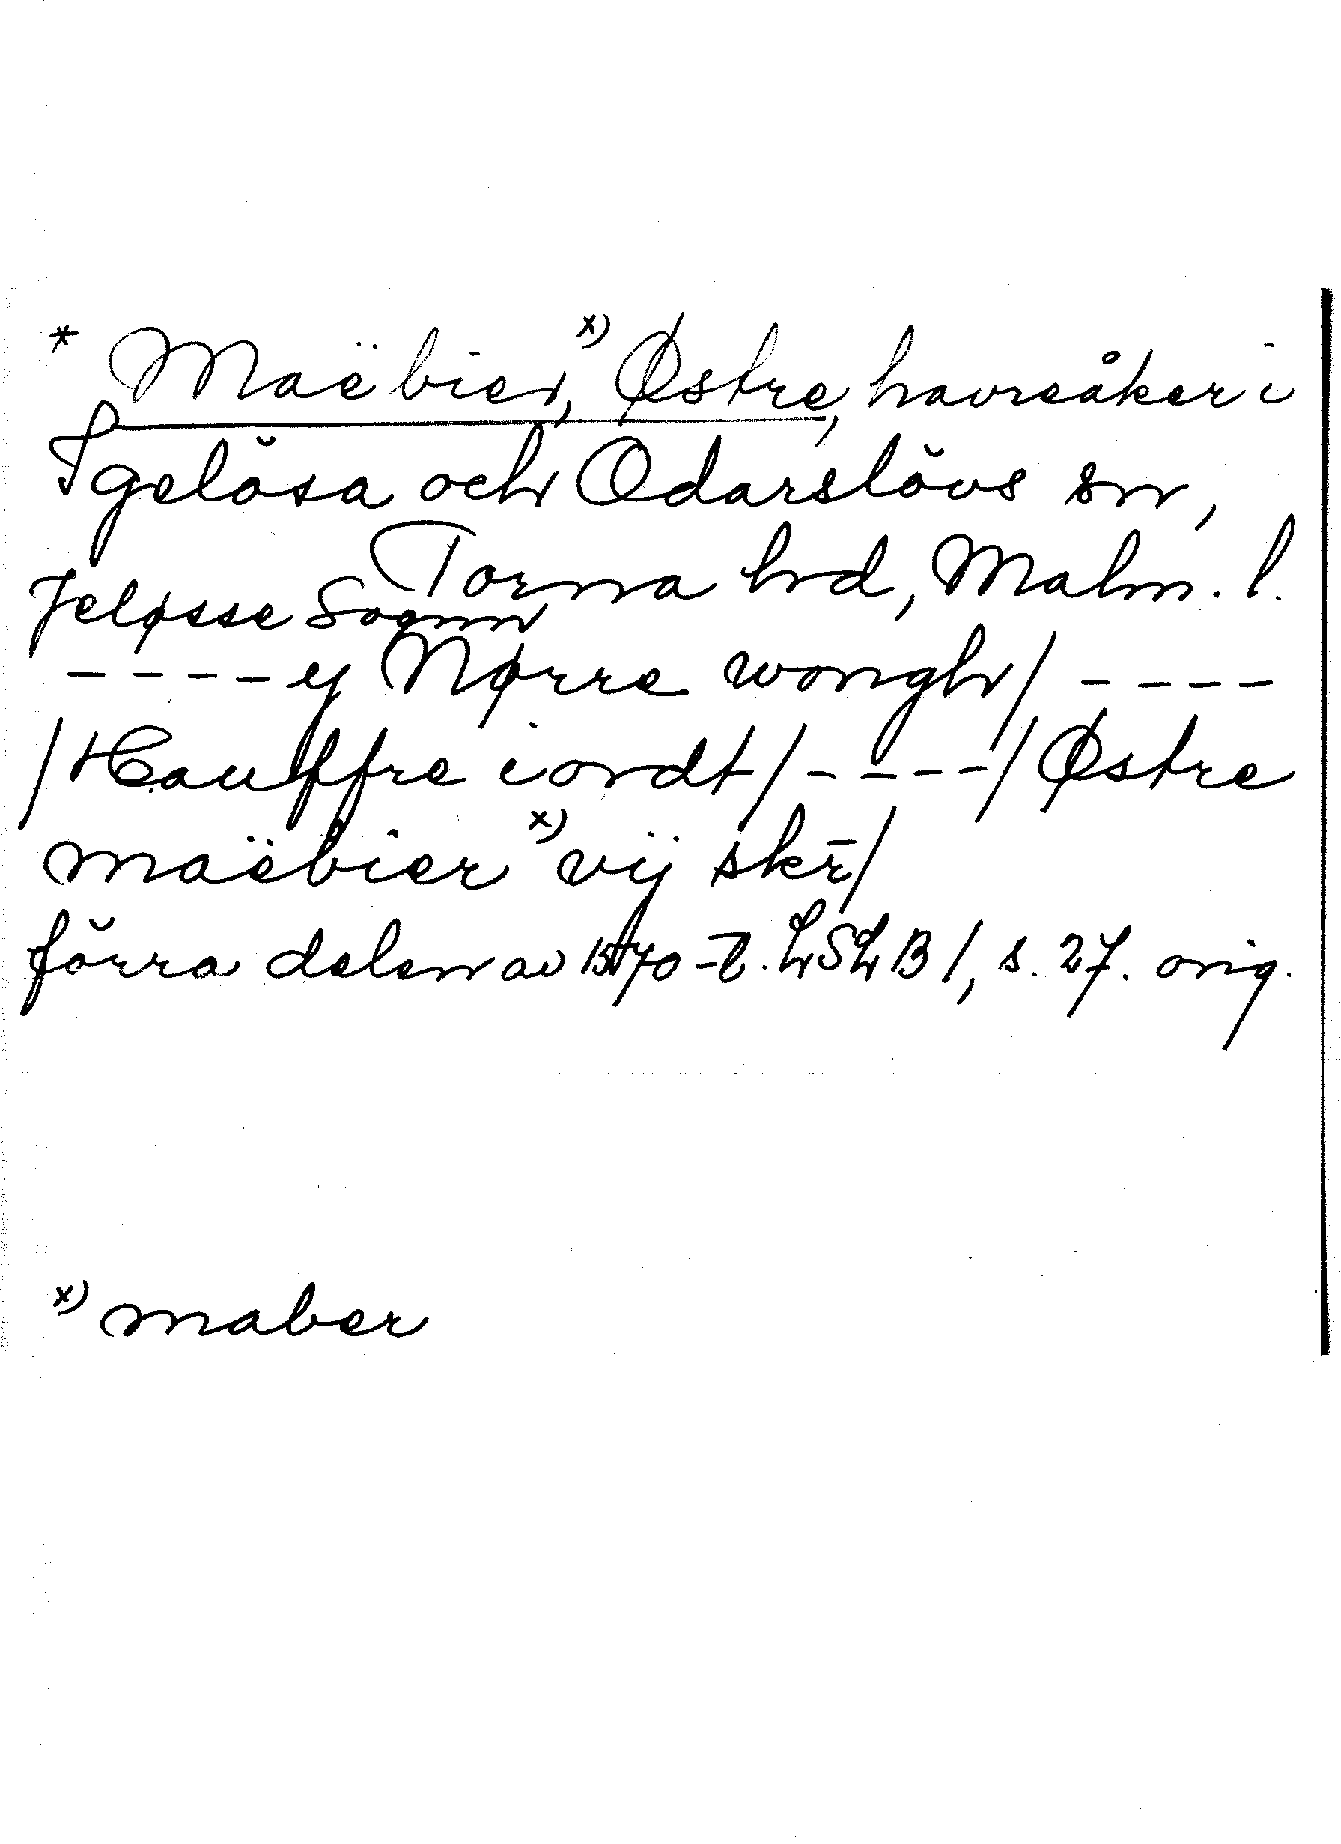 * Maëbier, x) Østre, havreåker i
Igelösa och Odarslövs snr,
Torna hd, Malm. l.
Jeløsse Sognn
----- y Nørre wongh/ ----
/Hauffre iordt/ ----/ Østre
maëbier x) vij skr̄/
förra delen av 1570-t. LSLB 1, s. 27. orig.
x) maber